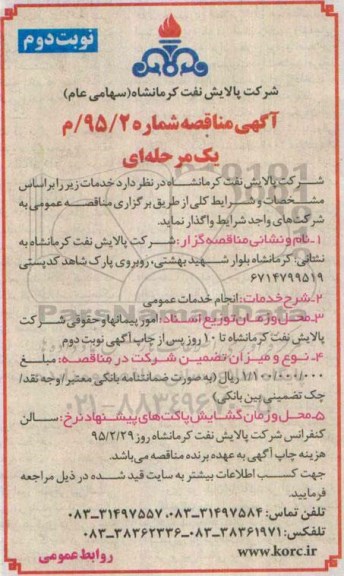 نوبت دوم
شرکت پالایش نفت کرمانشاه (سهامی عام)
آگهی مناقصه شماره ۹۵/۲/م
یک مرحله‌ای
شرکت پالایش نفت کرمانشاه در نظر دارد خدمات زیر را براساس
مشخصات و شرایط کلی از طریق برگزاری مناقصه عمومی به
شرکت‌های واجد شرایط واگذار نماید.
۱-نام و نشانی مناقصه‌گزار: شرکت پالایش نفت کرمانشاه به
نشانی: کرمانشاه بلوار شهید بهشتی، روبروی پارک شاهد کدپستی
۶۷۱۴۷۹۹۵۱۹
۲-شرح خدمات: انجام خدمات عمومی
۳-محل و زمان توزیع اسناد: امور پیمانها و حقوقی شرکت
پالایش نفت کرمانشاه تا ۱۰ روز پس از چاپ آگهی نوبت دوم
۴-نوع و میزان تضمین شرکت در مناقصه: مبلغ
۱/۱۰۰/۰۰۰/۰۰۰ ریال (به صورت ضمانتنامه بانکی معتبر / وجه نقد/
چک تضمینی بین بانکی)
۵-محل و زمان گشایش پاکت‌های پیشنهاد نرخ: سالن
کنفرانس شرکت پالایش نفت کرمانشاه روز ۹۵/۲/۲۹
هزینه چاپ آگهی به عهده برنده مناقصه می‌باشد.
جهت کسب اطلاعات بیشتر به سایت قید شده در ذیل مراجعه
فرمایید.
تلفن تماس: ۳۱۴۹۷۵۸۴-۰۸۳، ۳۱۴۹۷۵۵۷-۰۸۳
تلفکس: ۳۸۳۶۱۹۷۱-۰۸۳، ۳۸۳۶۲۳۳۶-۰۸۳
www.korc.ir
روابط عمومی